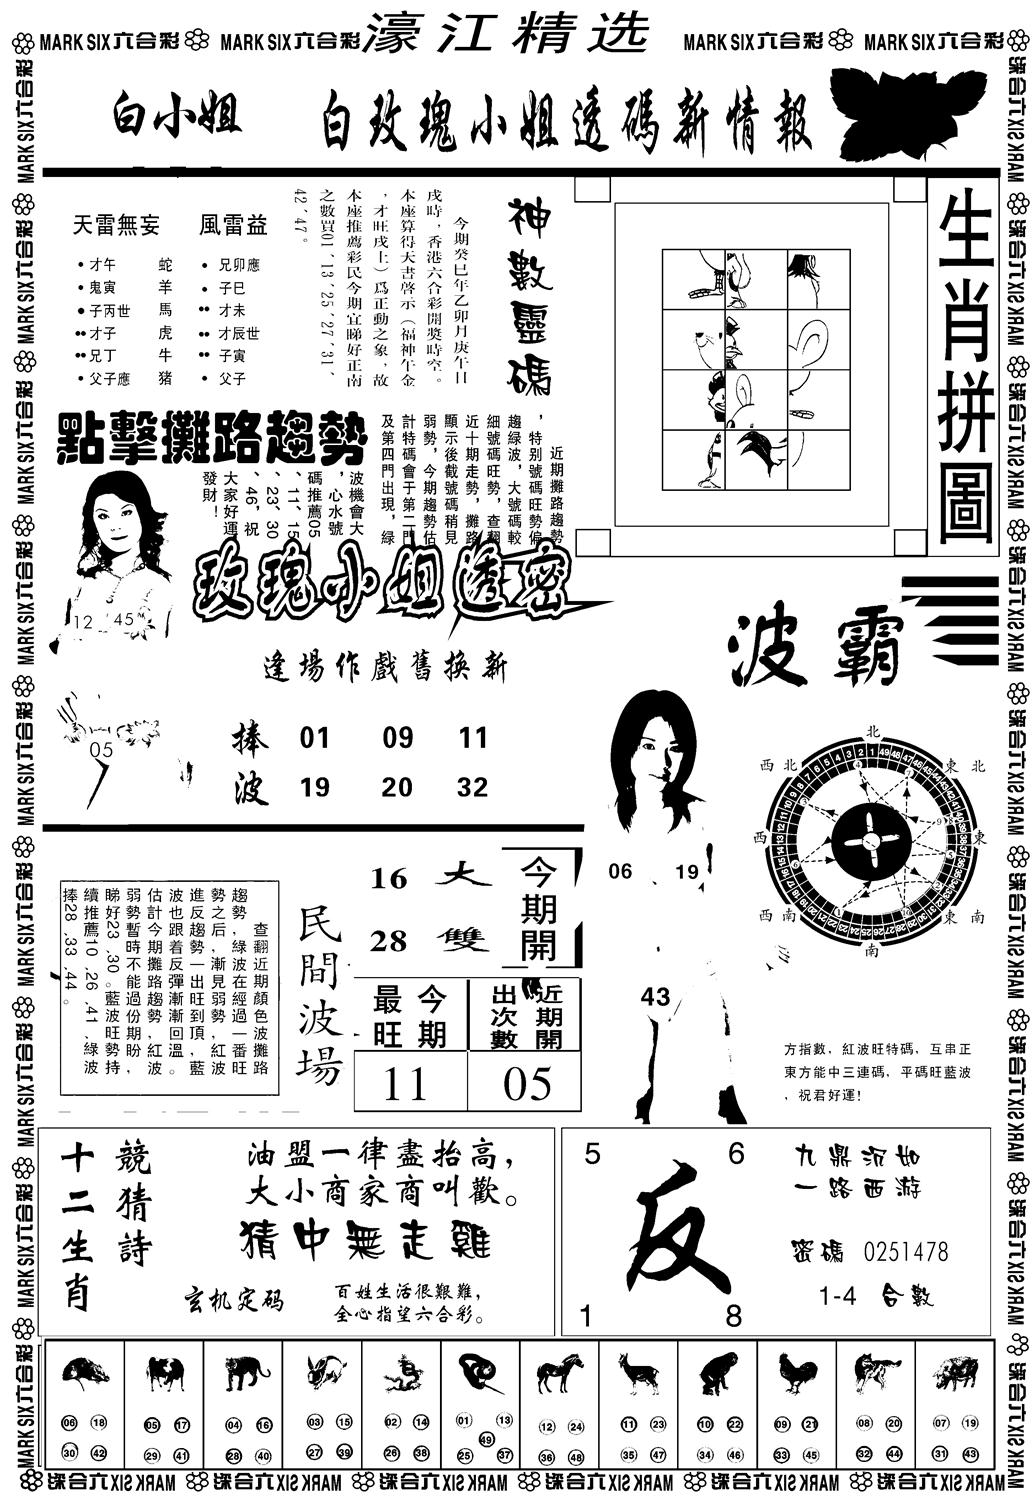 MARK SIX六合彩 MARK SIX六合彩 濠江精选 MARK SIX六合彩 MARK SIX六合彩
白小姐 白玫瑰小姐透碼新情報
天雷無妄 風雷益
•才午 蛇 •兄卯應
•鬼寅 羊 •子巳
•子丙世 馬 ••才未
••才子 虎 ••才辰世
••兄丁 牛 ••子寅
•父子應 猪 •父子
神數靈碼
今期癸巳年乙卯月庚午日
戌時，香港六合彩開獎時空。
本座算得天書啓示（福神午金
，才旺戌土）爲正動之象，故
本座推薦彩民今期宜睇好正南
之數買01、13、25、27、31、
42、47。
生肖拼圖
點擊攤路趨勢
近期攤路趨勢
，特別號碼旺勢偏
趨緑波，大號碼較
細號碼旺勢，查翻
近十期走勢，攤路
顯示後截號碼稍見
弱勢，今期趨勢估
計特碼會于第二門
及第四門出現，緑
波機會大
，心水號
碼推薦05
、11、15
、23、30
、46，祝
大家好運
發財！
12 45
05
玫瑰小姐透密
逢場作戲舊换新
捧 01 09 11
波 19 20 32
波霸
06 19
43
北
西北 東北
西 東
西南 東南
南
方指數，紅波旺特碼，互串正
東方能中三連碼，平碼旺藍波
，祝君好運!
查翻近期顏色波攤路
趨勢，綠波在經過一番旺
勢之后，漸見弱勢，紅波
進反趨勢一出旺到頂，藍
波也跟着反彈漸漸回溫。
估計今期攤路趨勢，紅波
弱勢暫時不能過份期盼，
睇好23,30。藍波旺勢持
續推薦10,26,41,綠波
捧28,33,44。
民間波場
16 大
28 雙
今期開
最旺 今期
出次數 近期開
11 05
十二生肖
競猜詩
油盟一律盡抬高，
大小商家商叫歡。
猜中無走雞
玄机定码
百姓生活很艱難，
全心指望六合彩。
5 6
反
1 8
九鼎沉如
一路西游
密碼 0251478
1-4 合數
06 18 05 17 04 16 03 15 02 14 01 13 12 24 11 23 10 22 09 21 08 20 07 19
49
30 42 29 41 28 40 27 39 26 38 25 37 36 48 35 47 34 46 33 45 32 44 31 43
MARK SIX六合彩 MARK SIX六合彩 MARK SIX六合彩 MARK SIX六合彩 MARK SIX六合彩 MARK SIX六合彩